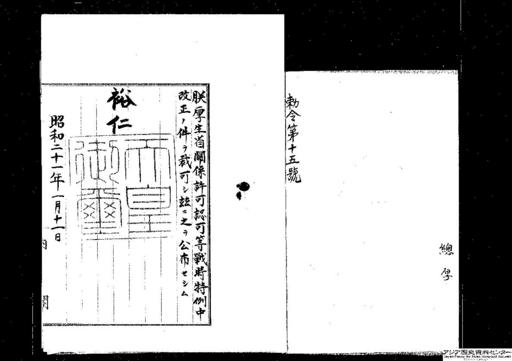 勅令第十五號
總孚
朕厚生省關係許可認可等戰時特例中
改正ノ件ヲ裁可シ茲ニ之ヲ公布セシム
裕仁
天皇御璽
昭和二十一年一月十一日
内閣
アジア歴史資料センター